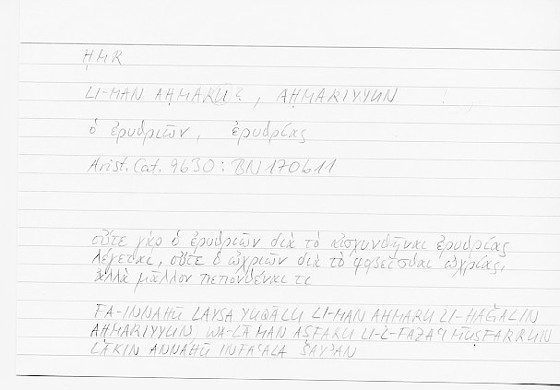 ḤMR
LI-MAN AḤMARU , AḤMARIYYUN
ὁ ἐρυθριῶν, ἐρυθρίας
Arist. Cat. 9b30 : BN 170b11
οὔτε γὰρ ὁ ἐρυθριῶν διὰ τὸ αἰσχυνθῆναι ἐρυθρίας
λέγεται, οὔτε ὁ ὠχριῶν διὰ τὸ φοβεῖσθαι ὠχρίας,
ἀλλὰ μᾶλλον πεπονθέναι τι
FA-INNAHŪ LAYSA YUQĀLU LI-MAN AḤMARU LI-ḪAǦALIN
AḤMARIYYUN WA-LĀ MAN AṢFARU LI-L-FAZAʿI MUṢFARRUN
LĀKIN ANNAHŪ INFAʿALA ŠAYʾAN